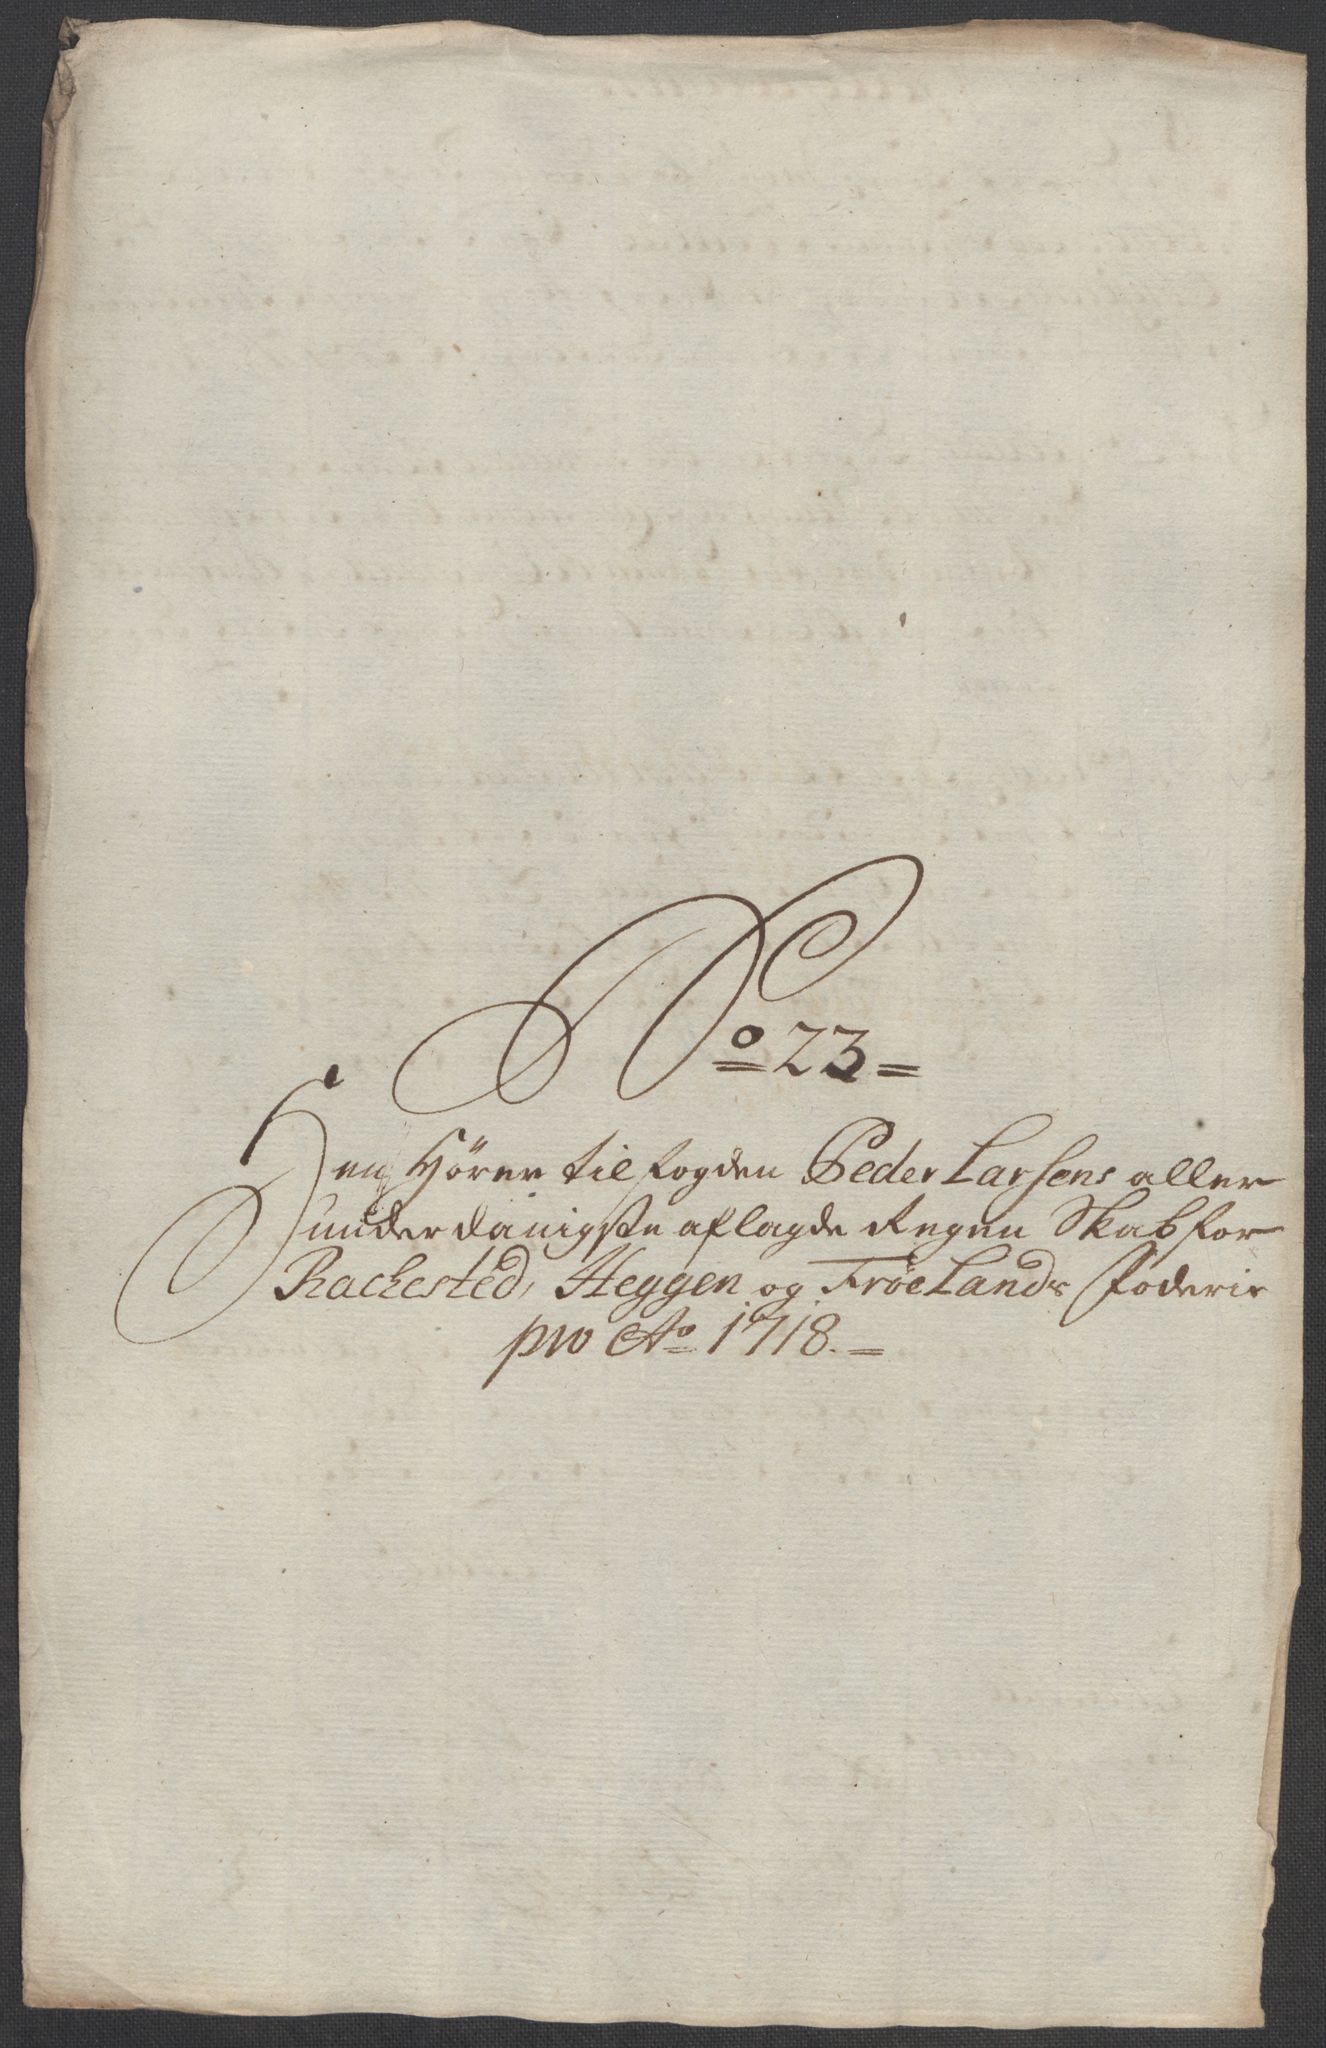 No 23=
Hen Hörer til fogden Peder Larsens aller
underdanigste aflagde Regen Skab for
Rachested, Heggen og Frøelands foderie
pro Ao 1718.=